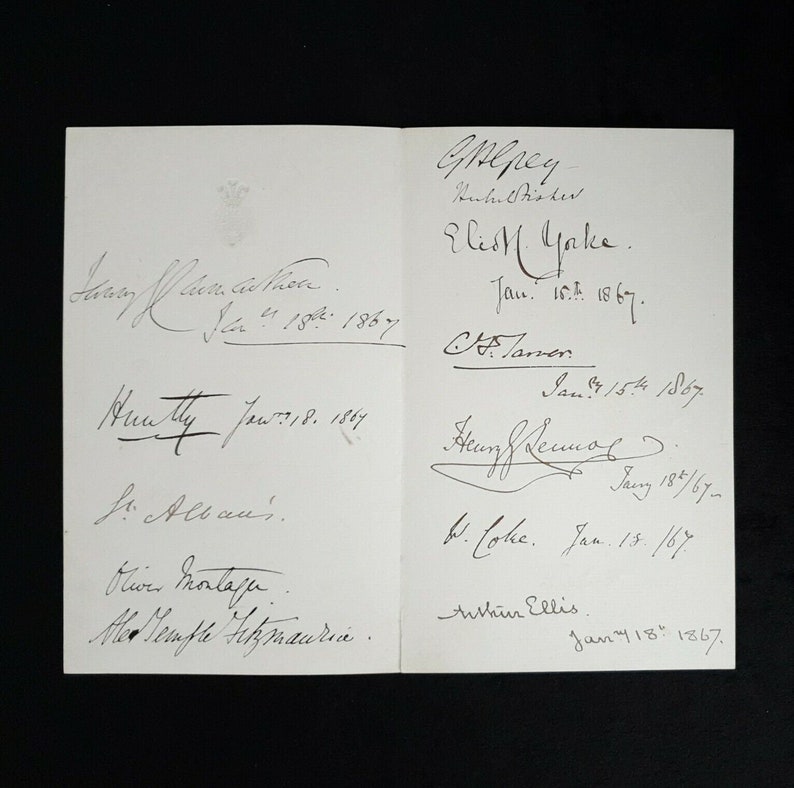 Huntly Jany 18. 1867
St. Alban's.
Oliver Montagu.
Alex Temple Fitzmaurice.
Jany 18th 1867
G H Grey
Eliot Yorke.
Jany 15th 1867.
C. F. Tarver.
Jany 15th 1867.
Henry G Lennox
Jany 18th/67
W. Coke. Jan. 18. /67.
Arthur Ellis.
Jany 18th 1867.